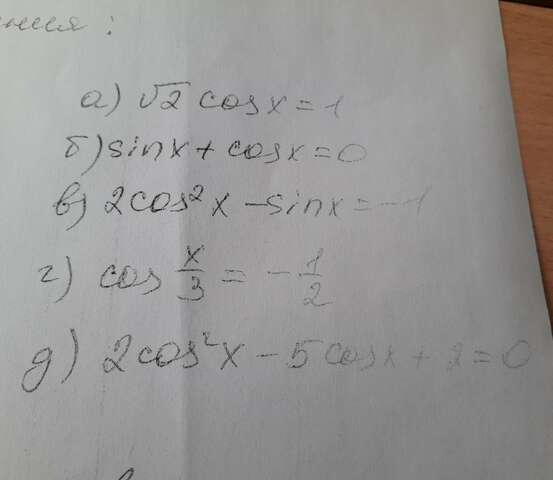 ния:
а) √2 cosx = 1
б) sinx + cosx = 0
в) 2cos²x - sinx = -1
г) cos x/3 = -1/2
д) 2cos²x - 5cosx + 2 = 0